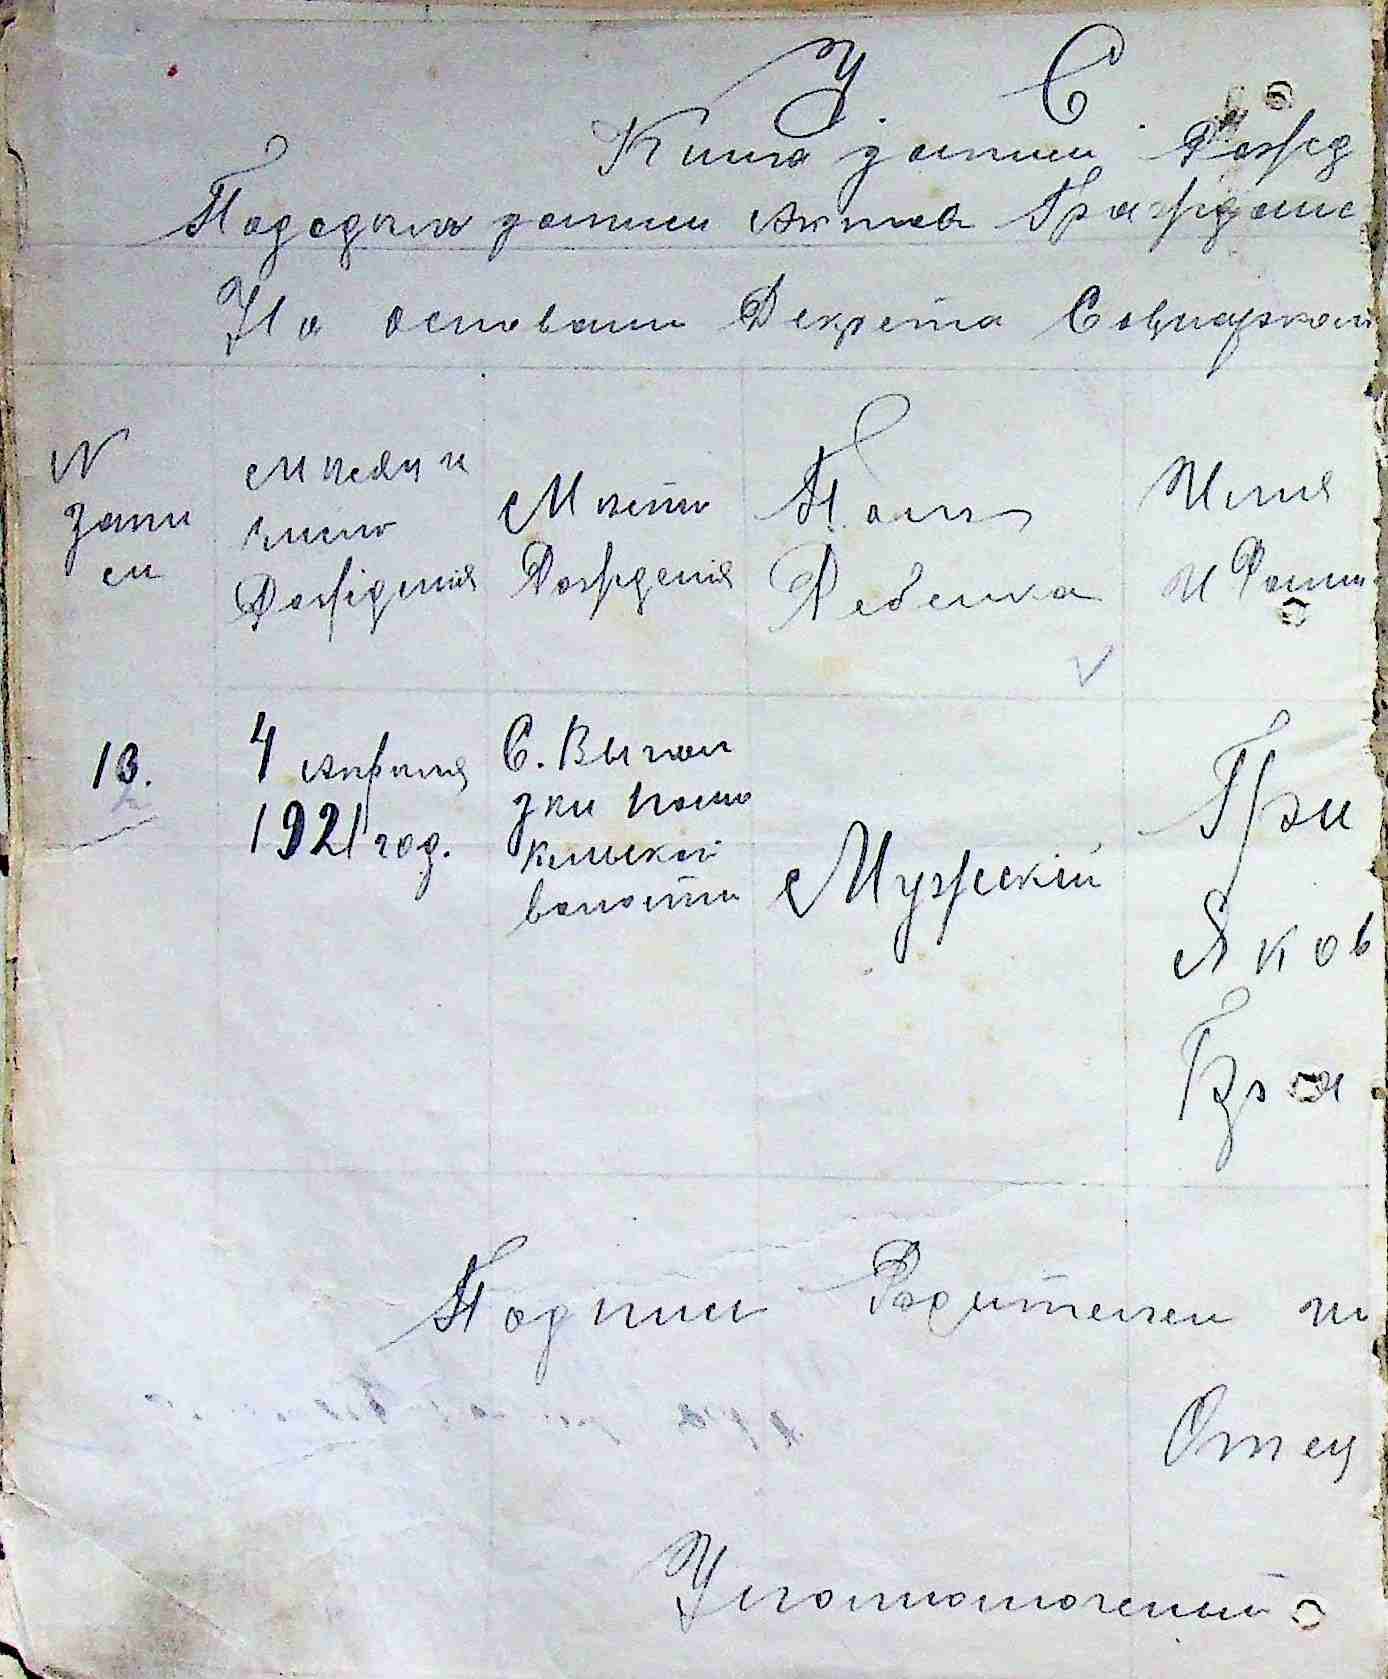 У С
Книга записи Рожд
Подотдела записи Актов Гражданс
На основани Декрета Совнарком
N
запи
си
Месяц и
число
Рождения
Место
Рождения
Пол
Ребенка
Имя
и Фами
13.
4 Апреля
1921 год.
С. Выпол
зки
волости
Мужскій
Гри
Яков
Подписи Родителей и
Отец
Уполномоченый